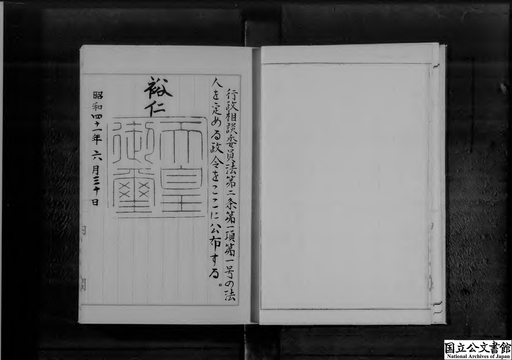 行政相談委員法第二条第一項第一号の法
人を定める政令をここに公布する。
裕仁
天皇
御璽
昭和四十一年六月三十日
国立公文書館
National Archives of Japan